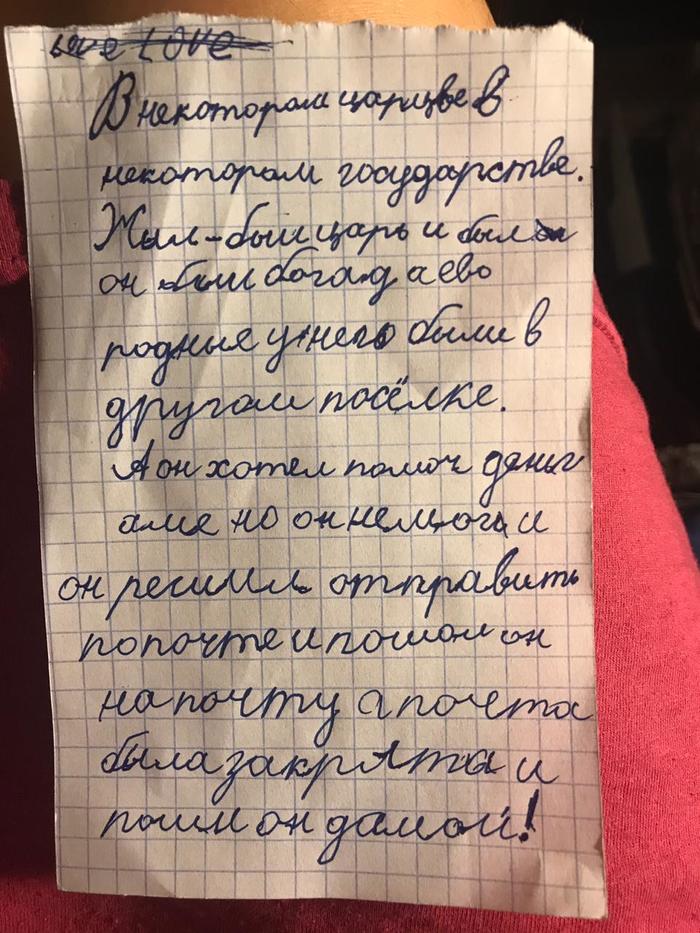 Love
В некотором царцве в
некотором государстве.
Жыл-был царь и был
он был богад а ево
родные у него были в
другом посёлке.
А он хотел помоч деньг
аме но он немог и
он решил отправить
по почте и пошол он
на почту а почта
была закрята и
пошл он дамой!